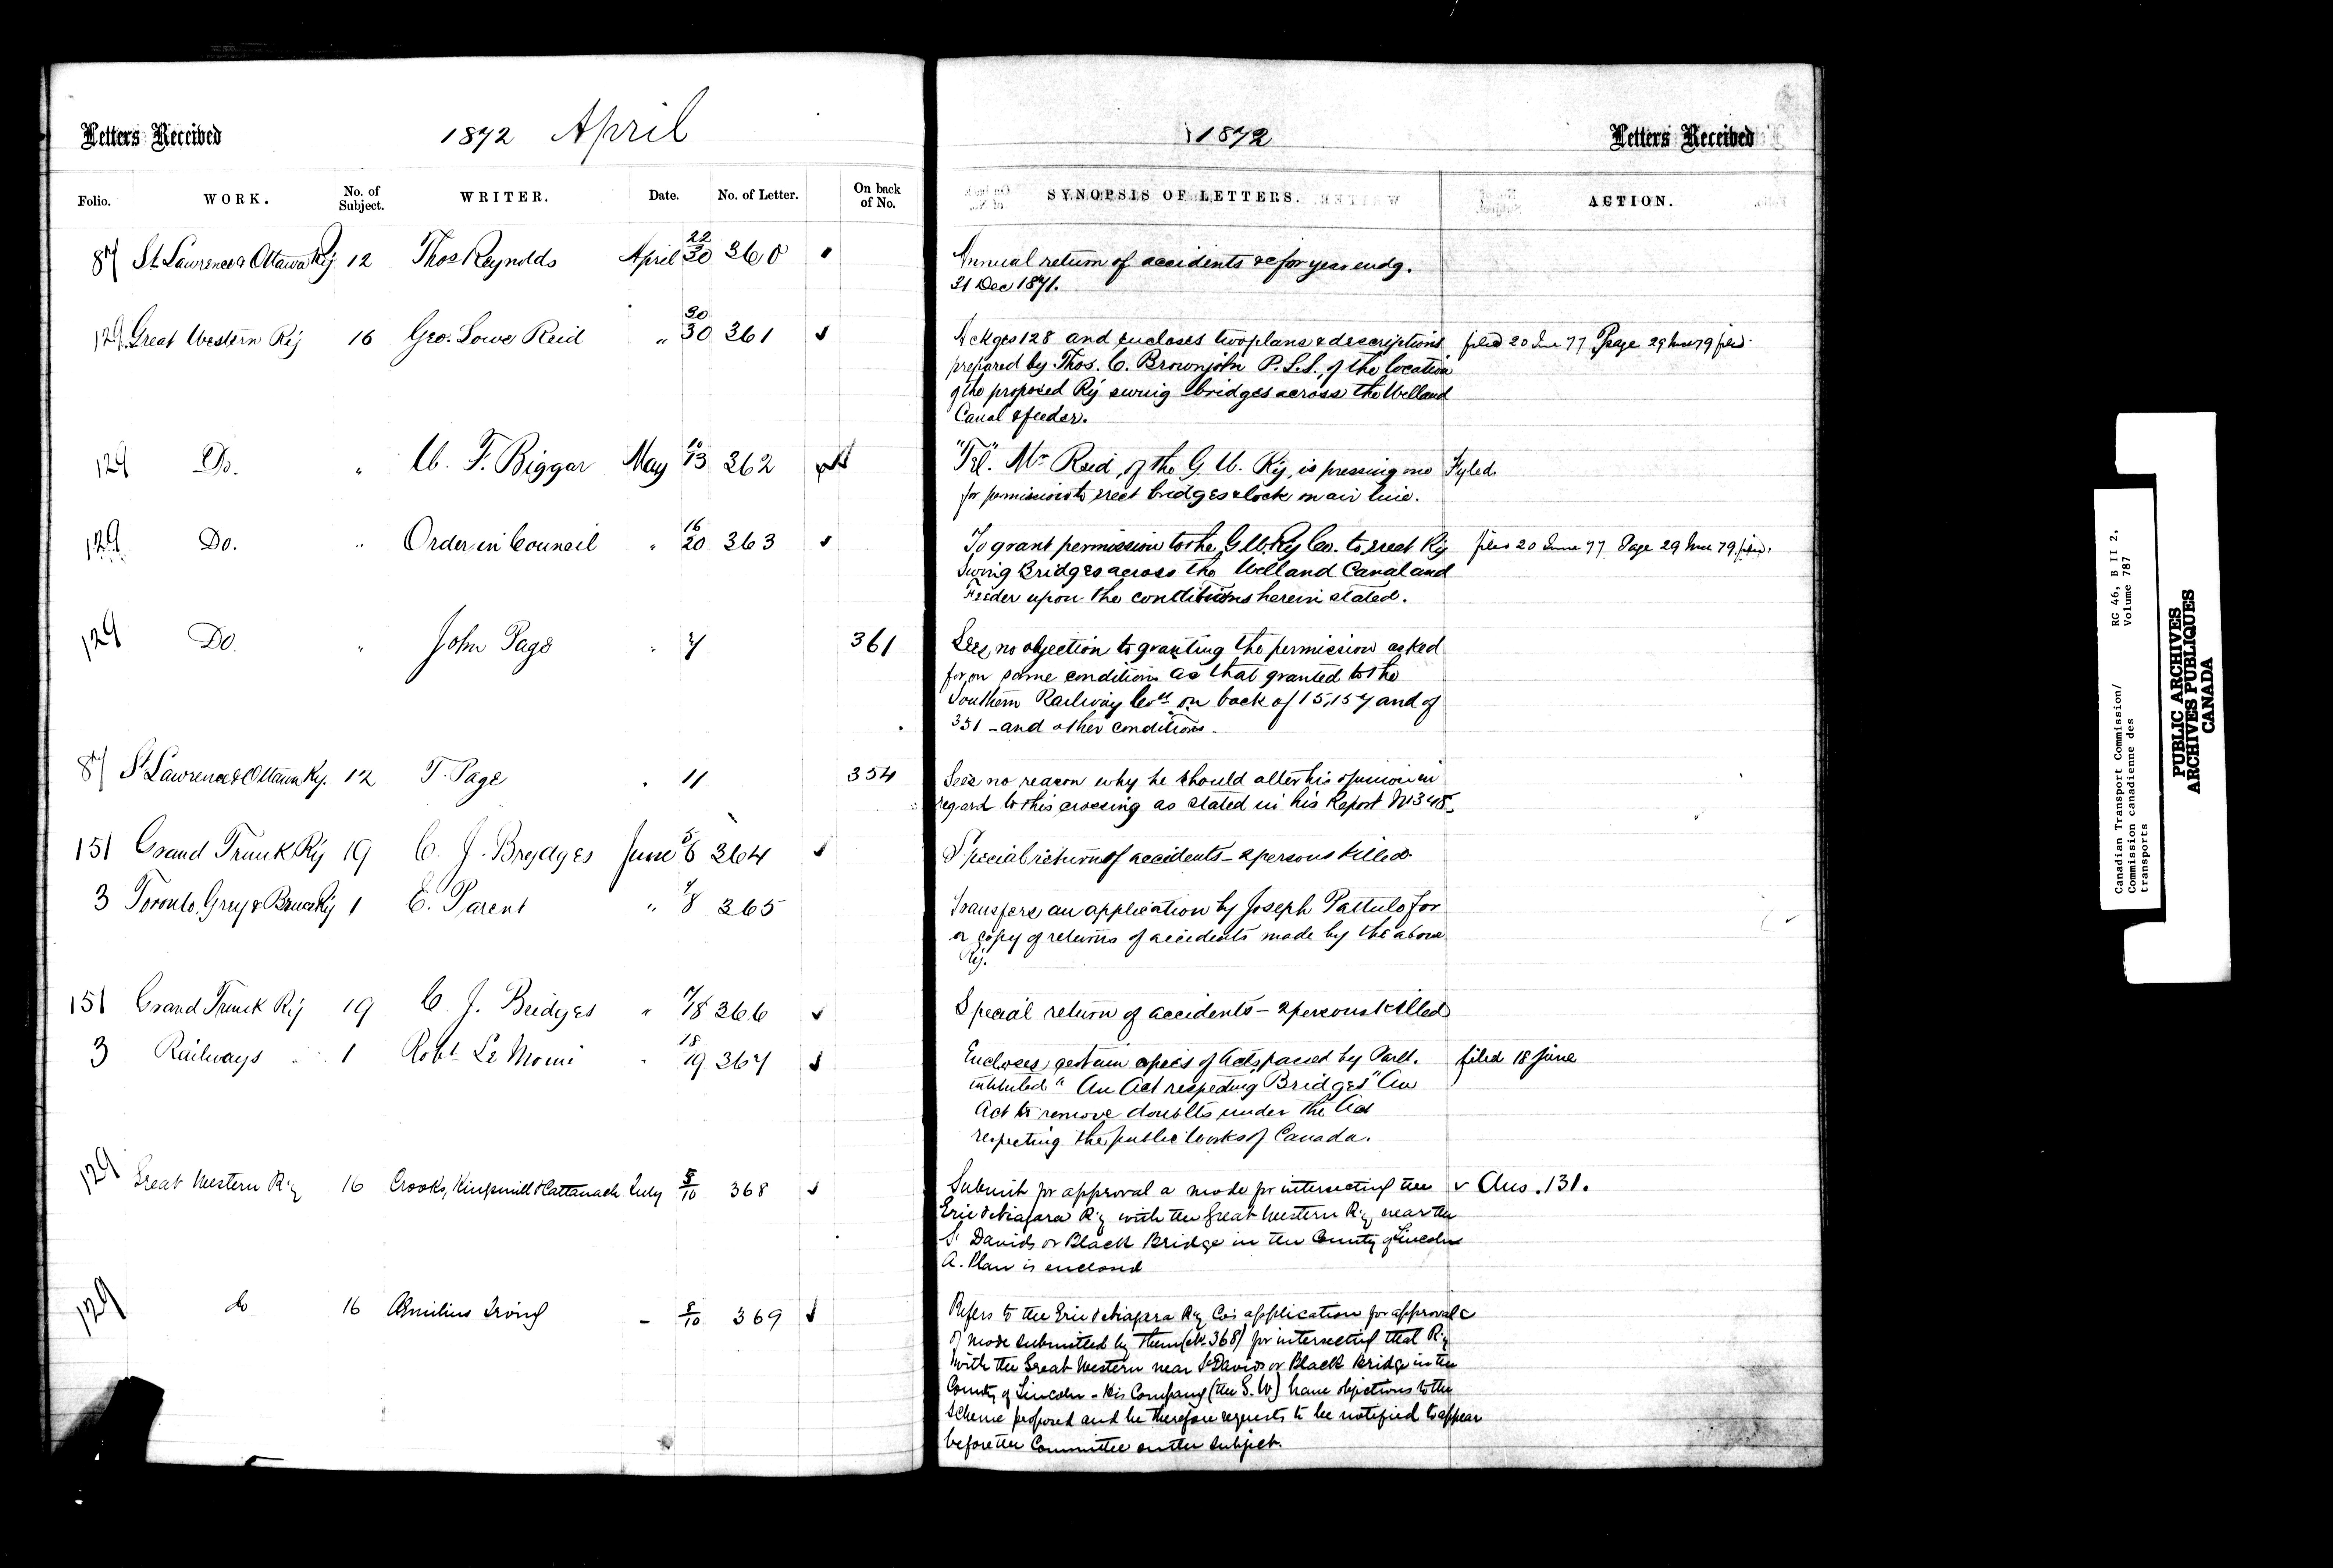 Letters Received
1872 April
Folio. WORK. No. of Subject. WRITER. Date. No. of Letter. On back of No.
87 St. Lawrence & Ottawa Ry 12 Thos Reynolds April 22/30 360
129 Great Western Ry 16 Geo. Lowe Reid " 30/30 361 ✓
129 Do. " W. F. Biggar May 10/13 362
129 Do. " Order in Council " 16/20 363 ✓
129 Do. " John Page " 7 361
87 St Lawrence & Ottawa Ry. 12 T. Page " 11 354
151 Grand Trunk Ry 19 C. J. Brydges June 5/6 364 ✓
3 Toronto, Grey & Bruce Ry 1 E. Parent " 7/8 365
151 Grand Trunk Ry 19 C. J. Bridges " 17/18 366 ✓
3 Railways 1 Robt Le Moine " 18/19 367 ✓
129 Great Western Ry 16 Crooks, Kingsmill & Cattanach July 8/10 368 ✓
129 do 16 Æmilius Irving – 8/10 369 ✓
1872
Letters Received
SYNOPSIS OF LETTERS. ACTION.
Annual return of accidents &c for year endg.
31 Dec 1871.
Ackges 128 and encloses two plans & descriptions filed 20 June 77 Page 29 June 79 filed.
prepared by Thos. C. Brownjohn P.L.S., of the location
of the proposed Ry swing bridges across the Welland
Canal & feeder.
"Tel." Mr Reid, of the G. W. Ry, is pressing me Fyled.
for permission to erect bridges & lock on air line.
To grant permission to the G.W.Ry Co. to erect Ry filed 20 June 77 Page 29 June 79 filed.
Swing Bridges across the Welland Canal and
Feeder upon the conditions herein stated.
Sees no objection to granting the permission asked
for, on same conditions as that granted to the
Southern Railway Coy on back of 15,157 and of
351 – and other conditions.
Sees no reason why he should alter his opinion in
regard to this crossing as stated in his Report No 345.
Special return of accidents – 2 persons killed.
Transfers an application by Joseph Pattulo for
a copy of returns of accidents made by the above
Ry.
Special return of accidents – 2 persons killed
Encloses certain copies of Acts, passed by Parlt. filed 18 June
intituled "An Act respecting Bridges" An
Act to remove doubts under the Act
respecting the public works of Canada.
Submit for approval a mode for intersecting the ✓ Ans. 131.
Erie & Niagara Ry with the Great Western Ry near the
St Davids or Black Bridge in the County of Lincoln
A. Plan is enclosed
Refers to the Erie & Niagara Ry Co's application for approval
of mode submitted by them (No. 368) for intersecting that Ry
with the Great Western near St Davids or Black Bridge in the
County of Lincoln – His Company (the G. W) have objections to the
Scheme proposed and he therefore requests to be notified to appear
before the Committee on the subject.
Canadian Transport Commission/
Commission canadienne des
transports
RG 46, B II 2,
Volume 787
PUBLIC ARCHIVES
ARCHIVES PUBLIQUES
CANADA